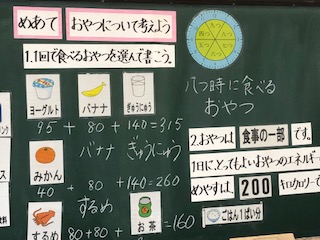 めあて
おやつについて考えよう
1.1回で食べるおやつを選んで書こう。
ヨーグルト
バナナ
ぎゅうにゅう
95 + 80 + 140=315
バナナ ぎゅうにゅう
みかん
40 + 80 + 140=260
するめ
するめ
お茶
80+80+ =160
八つ
八つ時に食べる
おやつ
2.おやつは 食事の一部 です。
1日にとってもよいおやつのエネルギー
めやすは、 200 キロカロリーで
ごはん1ぱい分